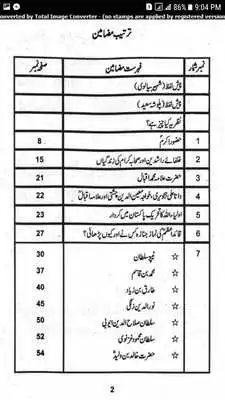 86% 9:04 PM
converted by Total Image Converter - (no stamps are applied by registered version
ترتیب مضامین
نمبر شمار فہرست مضامین صفحہ نمبر
پیش لفظ (شبیر سیالوی)
پیش لفظ (پلوشہ سعید)
نظریہ کیا چیز ہے؟
1 حضور اکرمؐ 8
2 خلفائے راشدین اور صحابہ کرام کی زندگیاں 15
3 حضرت علامہ محمد اقبال 21
4 داتا علی ہجویری، خواجہ معین الدین چشتی اور علامہ اقبال 22
5 اولیاء اللہ کا تحریک پاکستان میں کردار 23
6 قائد اعظم کی نماز جنازہ کس نے اور کیوں پڑھائی؟ 27
7 ☆ ٹیپو سلطان 30
☆ محمد بن قاسم 37
☆ طارق بن زیاد 40
☆ نور الدین زنگی 45
☆ سلطان صلاح الدین ایوبی 50
☆ سلطان محمود غزنوی 52
☆ حضرت خالد بن ولید 54
2